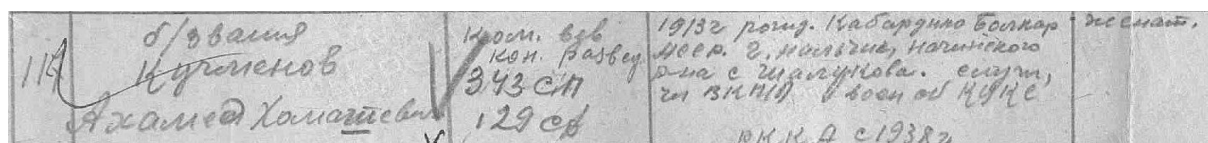 114
б/звания
Кучменов
Ахамед Хаматевич
Ком. взв
кон. развед
343 сп
129 сд
1913 г рожд. Кабардино Балкар
АССР. г. Нальчик,
р-на с Шалукова. служ,
чл ВКП/б воен об КУКС
РККА с 1938 г
женат.